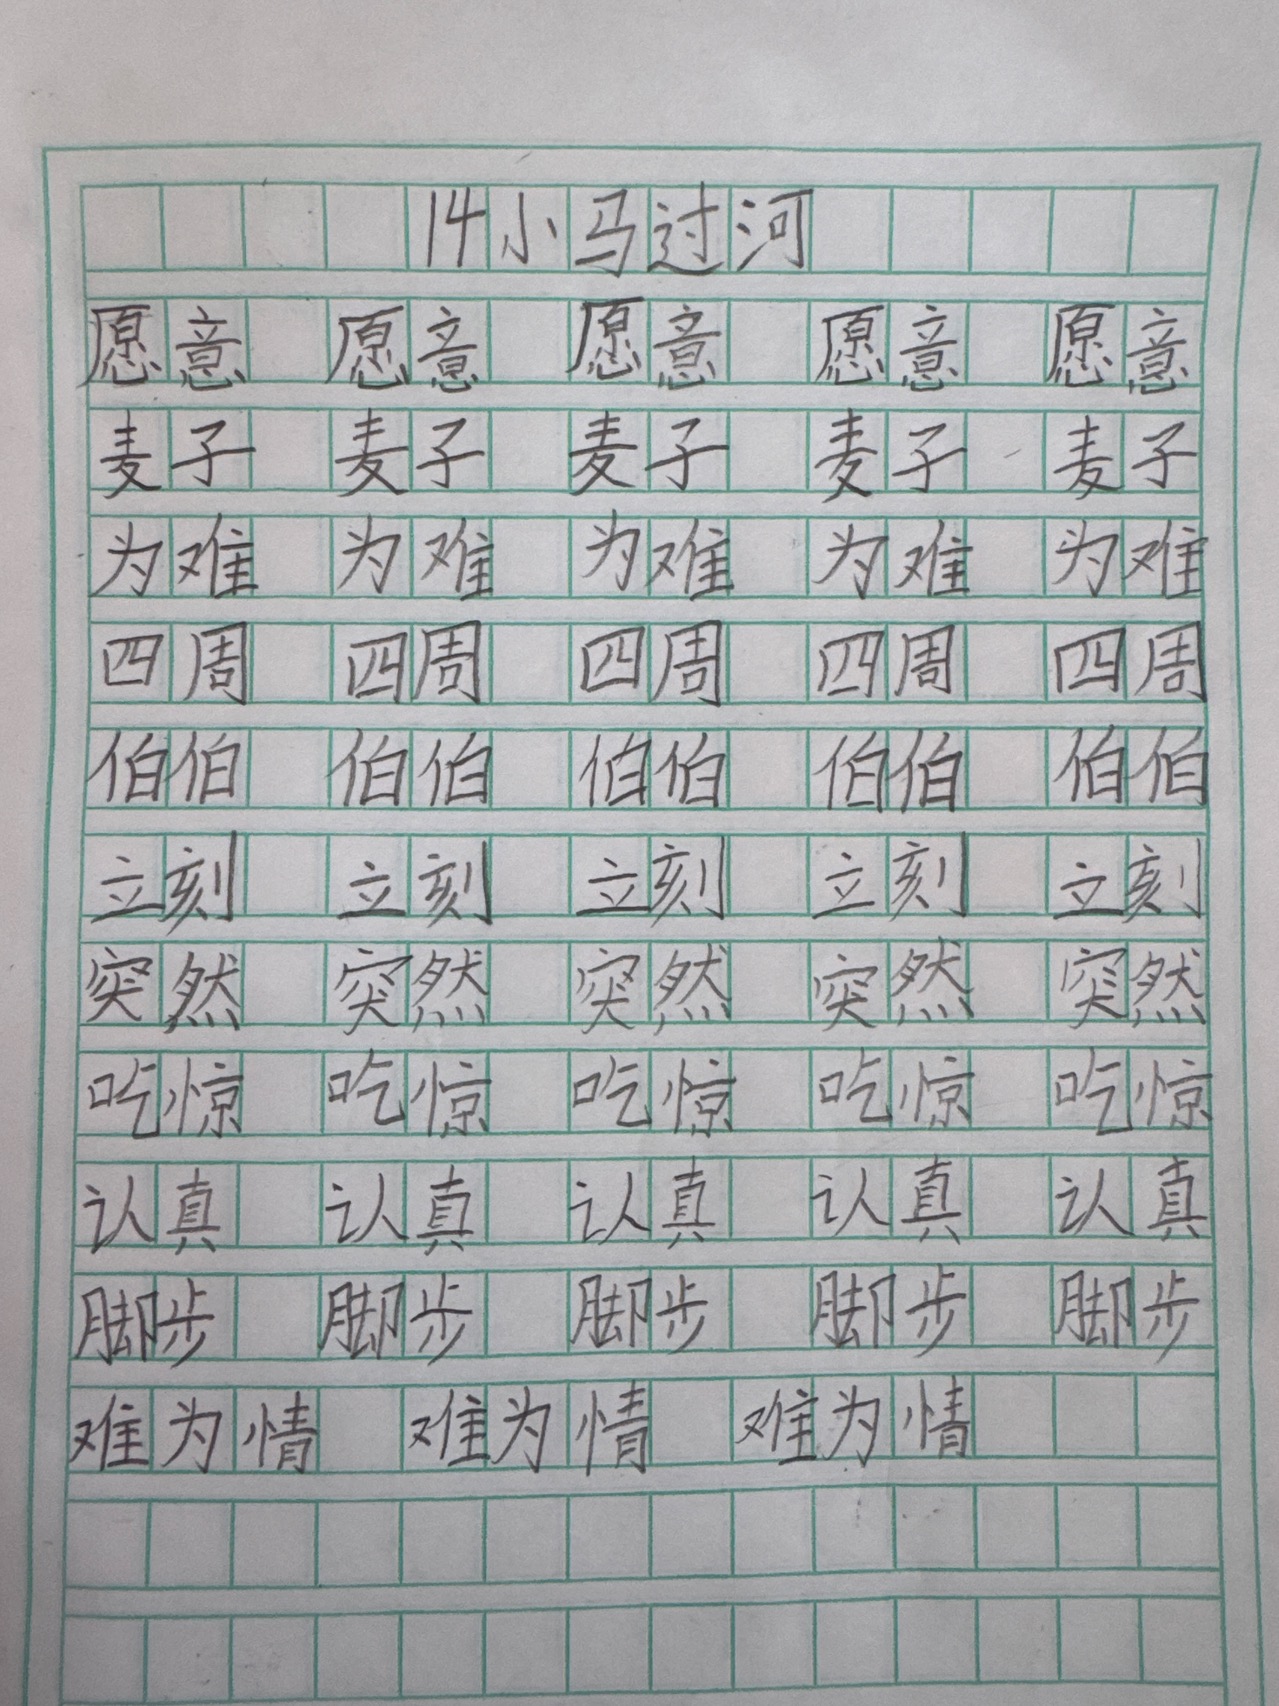 14小马过河
愿意 愿意 愿意 愿意 愿意
麦子 麦子 麦子 麦子 麦子
为难 为难 为难 为难 为难
四周 四周 四周 四周 四周
伯伯 伯伯 伯伯 伯伯 伯伯
立刻 立刻 立刻 立刻 立刻
突然 突然 突然 突然 突然
吃惊 吃惊 吃惊 吃惊 吃惊
认真 认真 认真 认真 认真
脚步 脚步 脚步 脚步 脚步
难为情 难为情 难为情